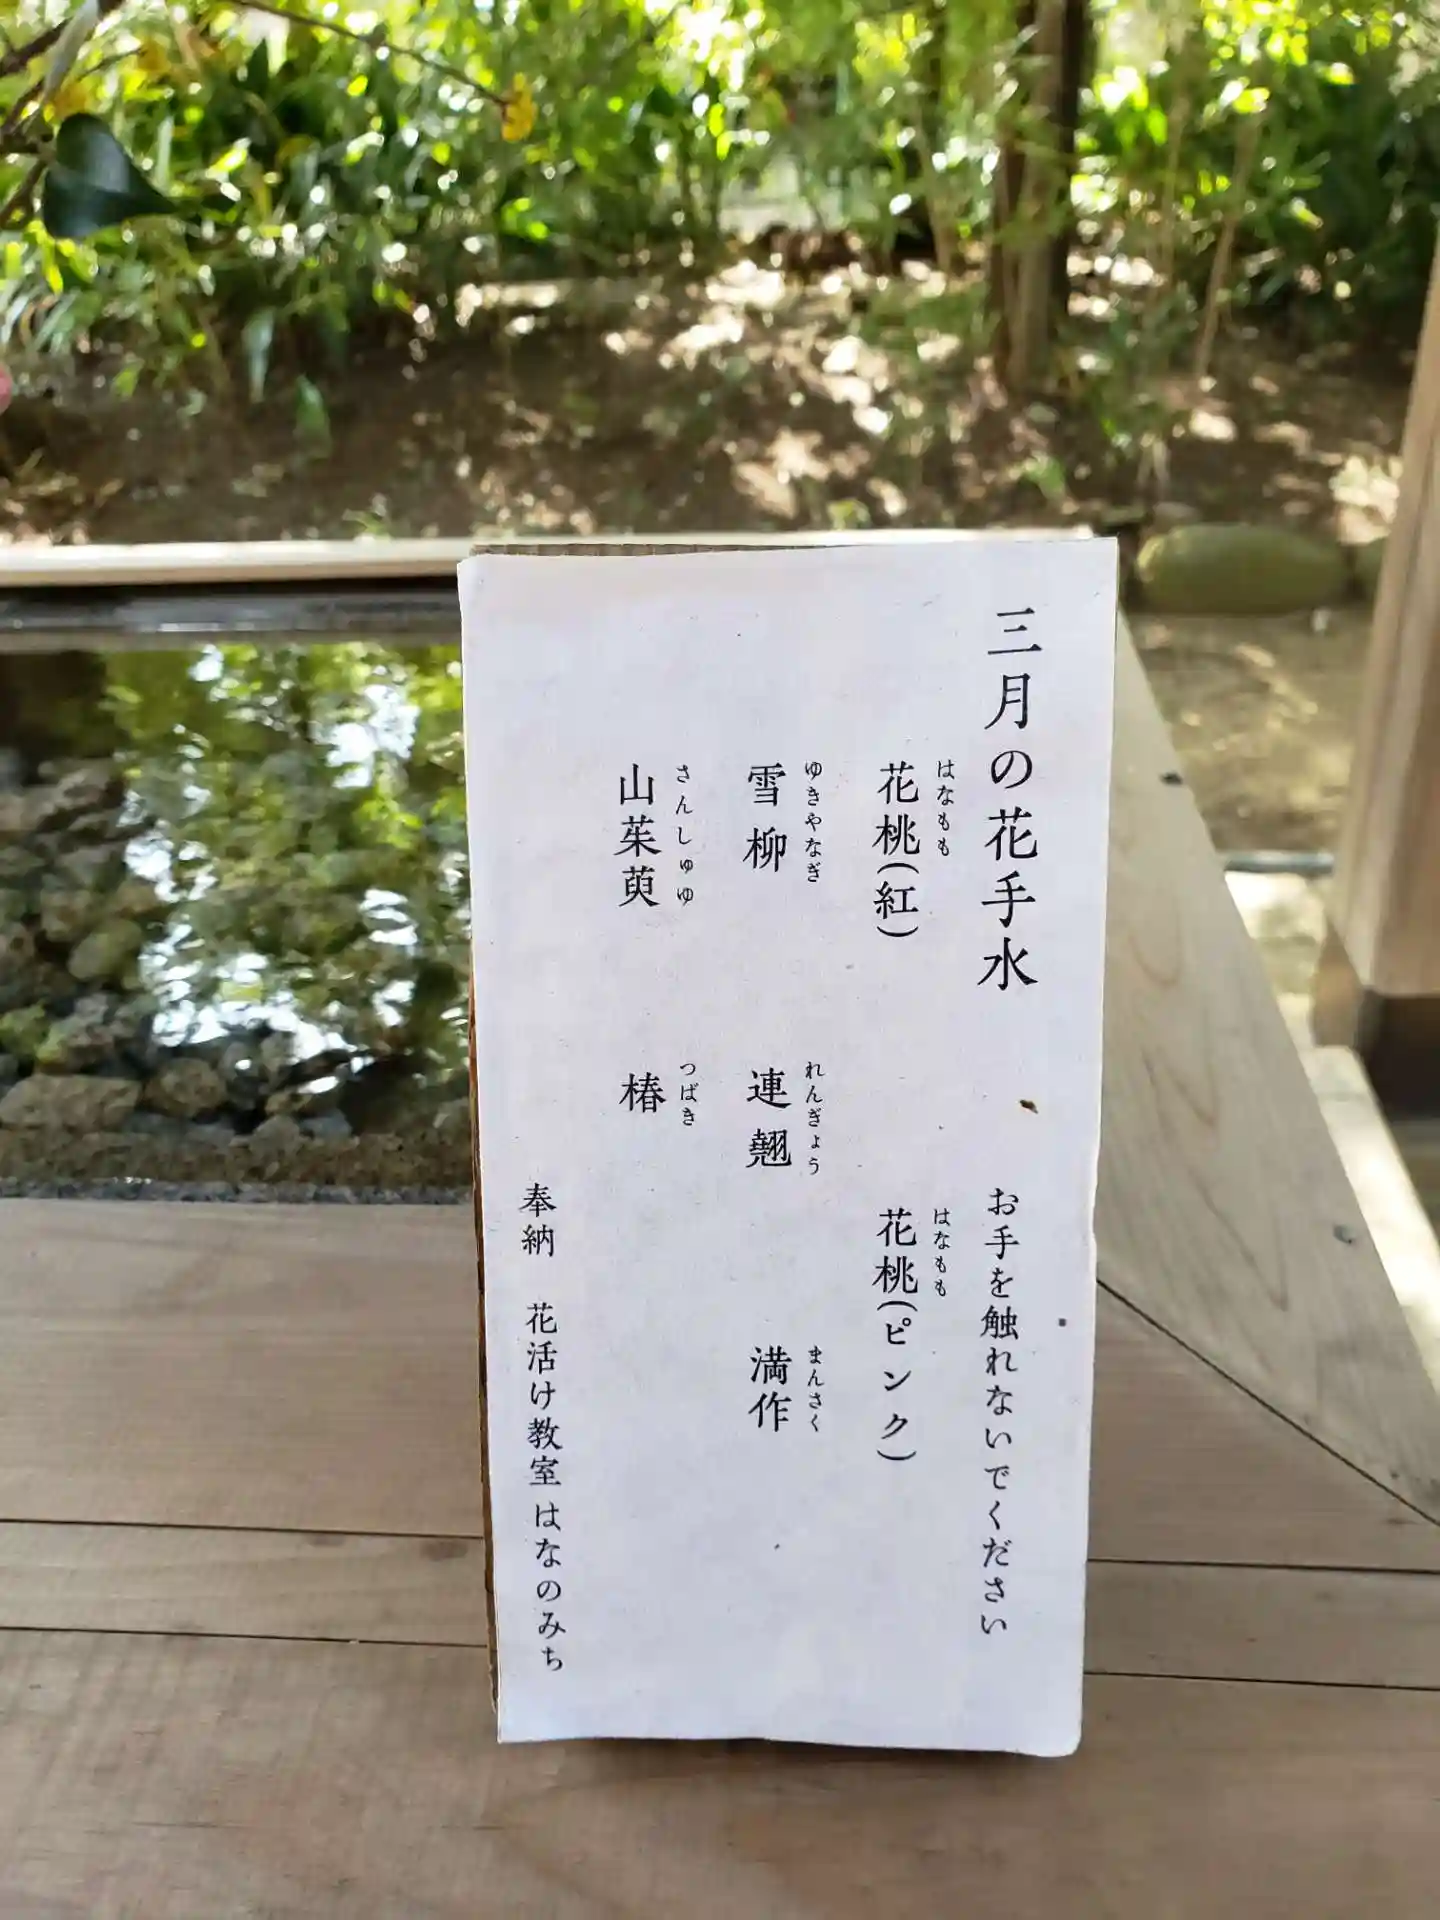 三月の花手水 お手を触れないでください
はなもも はなもも
花桃(紅) 花桃(ピンク)
ゆきやなぎ れんぎょう まんさく
雪柳 連翹 満作
さんしゅゆ つばき
山茱萸 椿
奉納 花活け教室 はなのみち